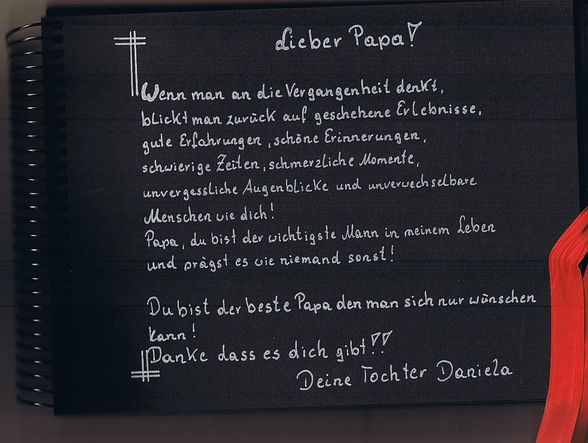 Lieber Papa!
Wenn man an die Vergangenheit denkt,
blickt man zurück auf geschehene Erlebnisse,
gute Erfahrungen, schöne Erinnerungen,
schwierige Zeiten, schmerzliche Momente,
unvergessliche Augenblicke und unverwechselbare
Menschen wie dich!
Papa, du bist der wichtigste Mann in meinem Leben
und prägst es wie niemand sonst!
Du bist der beste Papa den man sich nur wünschen
kann!
Danke dass es dich gibt!!
Deine Tochter Daniela